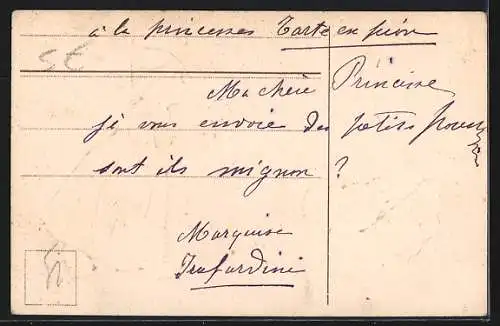 à la princesses Tarte en pion
5E
Ma chère Princesse
je vous envoie des petits
sont ils mignon ?
Marquise
Trafardini